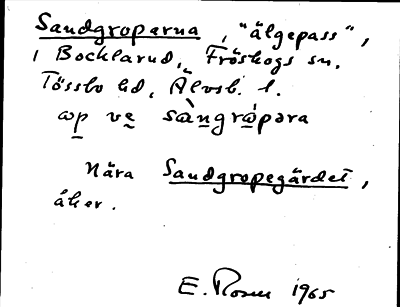 Sandgroparna, "älgepass",
i Bocklarud, Fröskogs sn.
Tössbo hd, Älvsb. l.
åp ve sàngrópəra
Nära Sandgropegärdet,
åker.
E. Rosen 1965